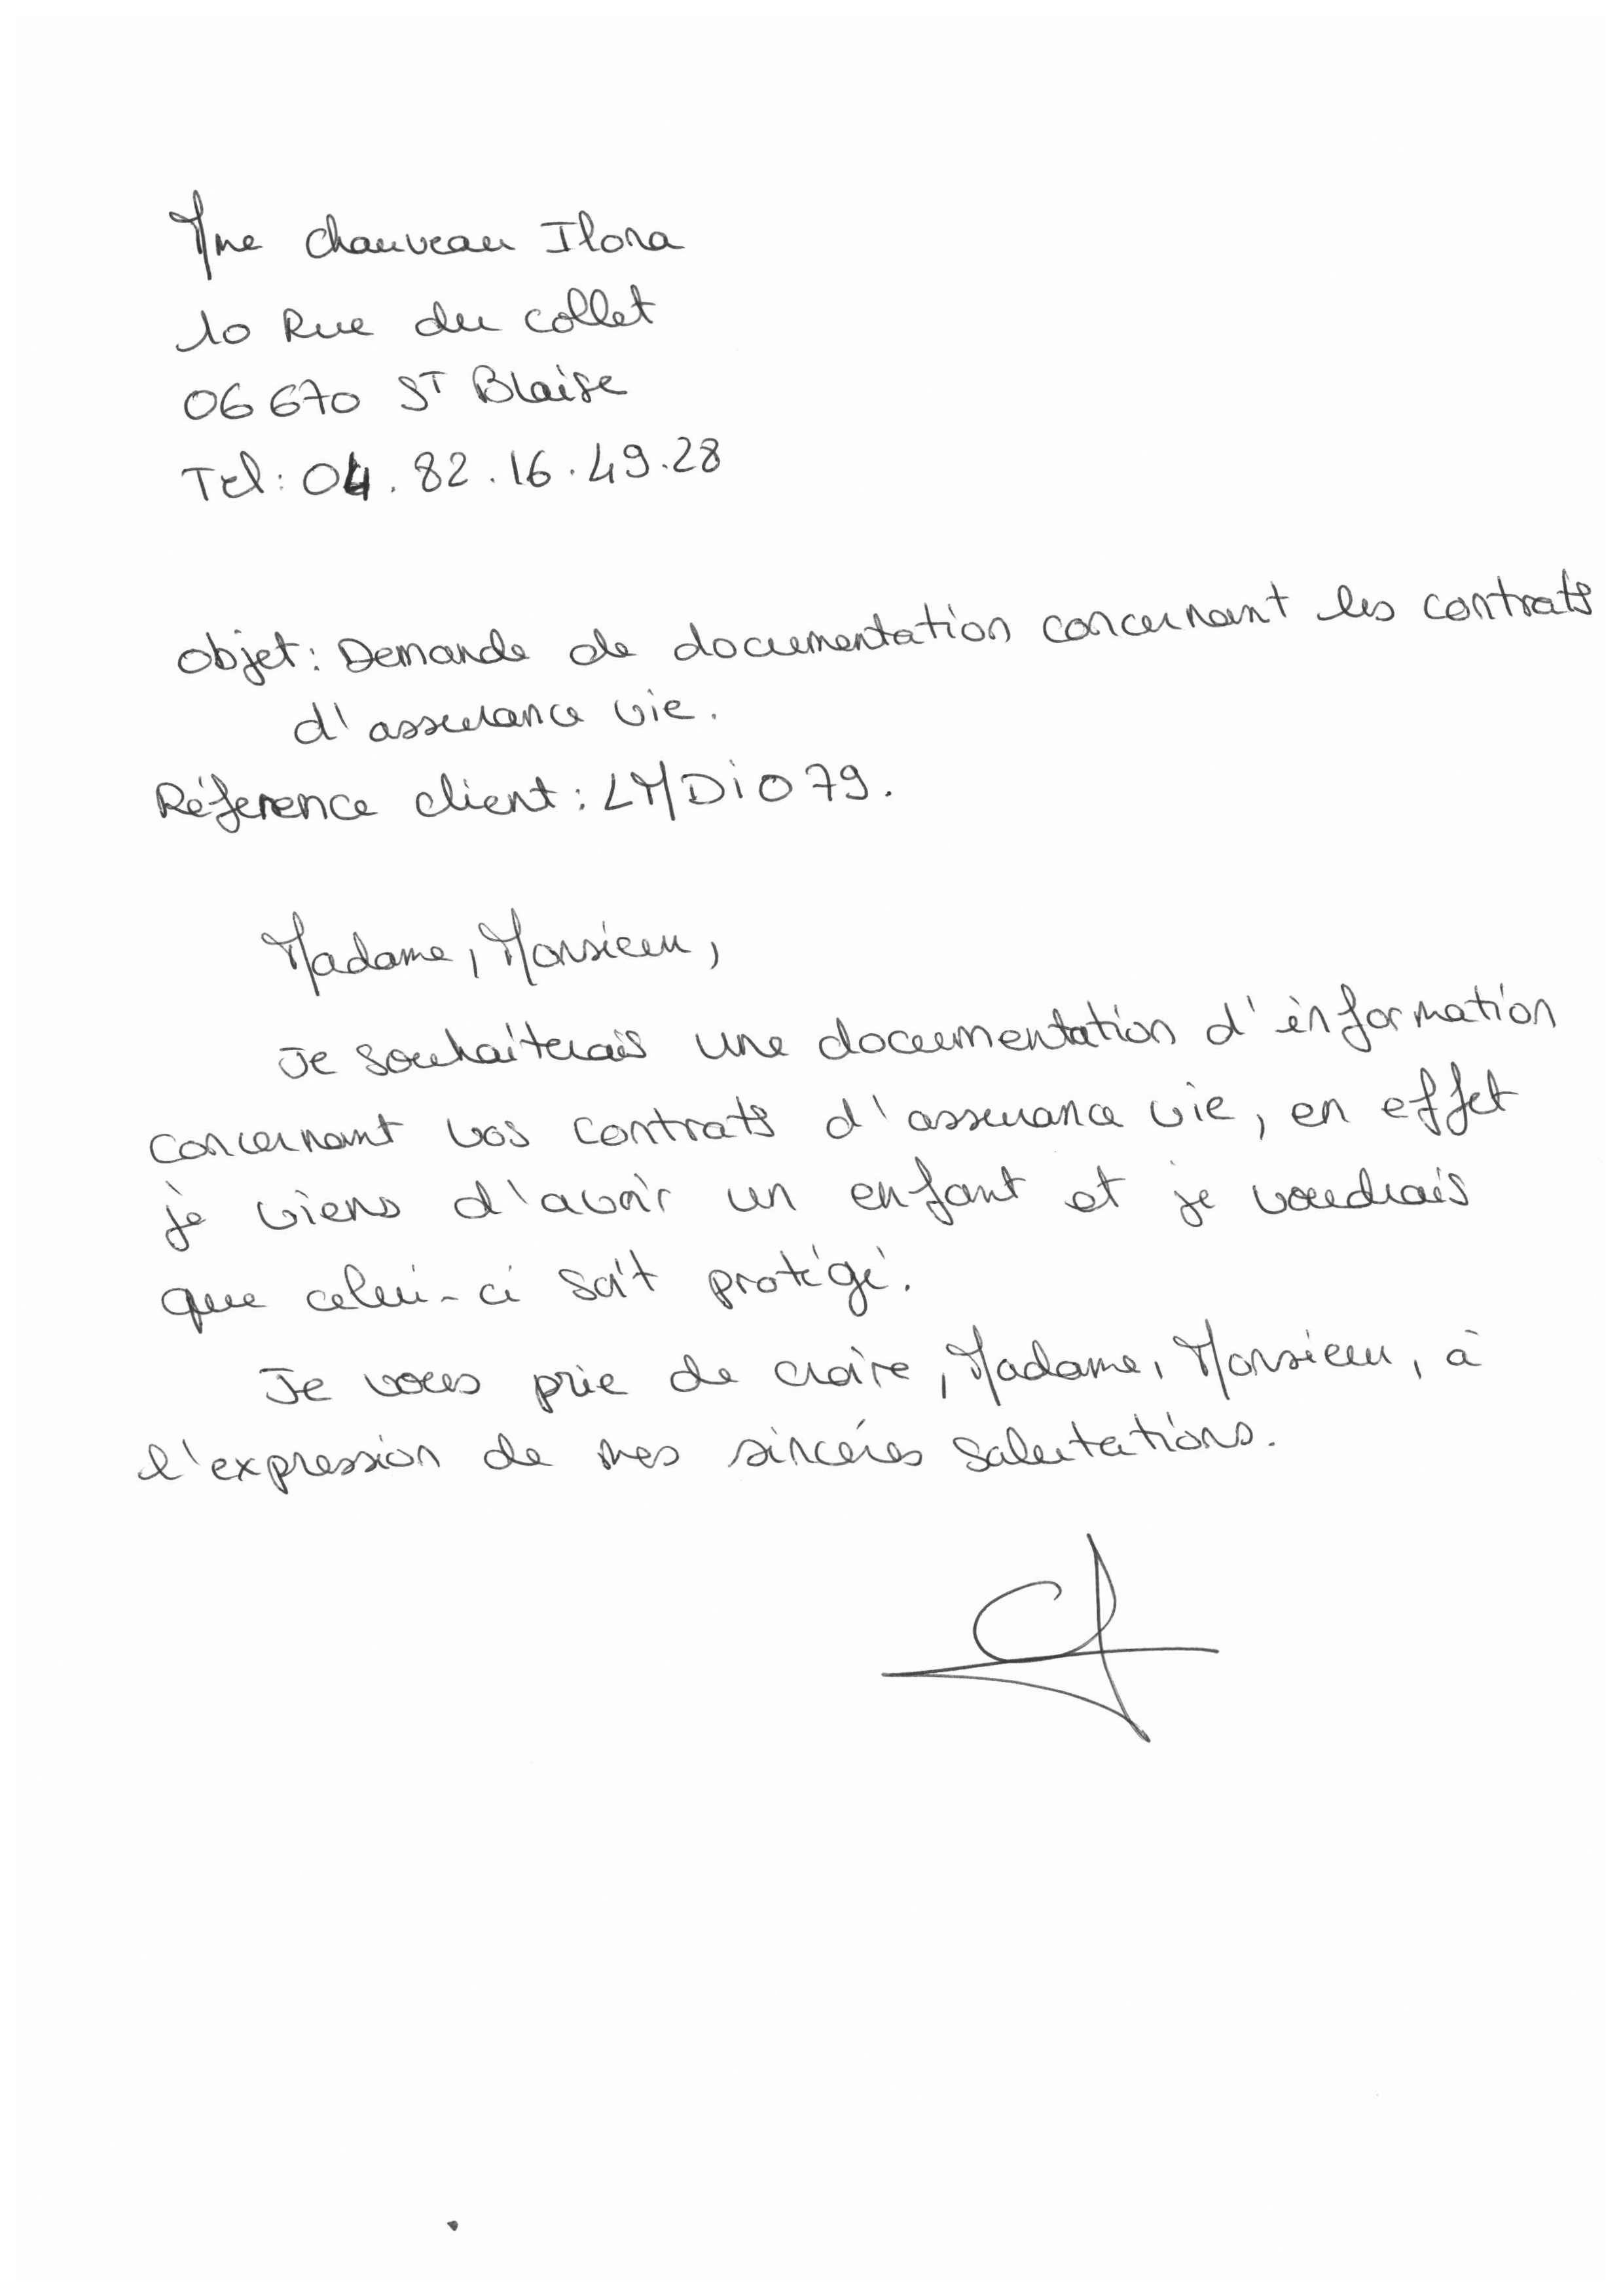 Mme Chauveau Ilona
10 Rue du collet
06670 ST Blaise
Tel: 04.82.16.49.28
objet: Demande de documentation concernant les contrats
d'assurance vie.
Réference client: LMDIO79.
Madame, Monsieur,
Je souhaiterais une documentation d'information
concernant vos contrats d'assurance vie, en effet
je viens d'avoir un enfant et je voudrais
que celui-ci soit protégé.
Je vous prie de croire, Madame, Monsieur, à
l'expression de mes sincéres salutations.